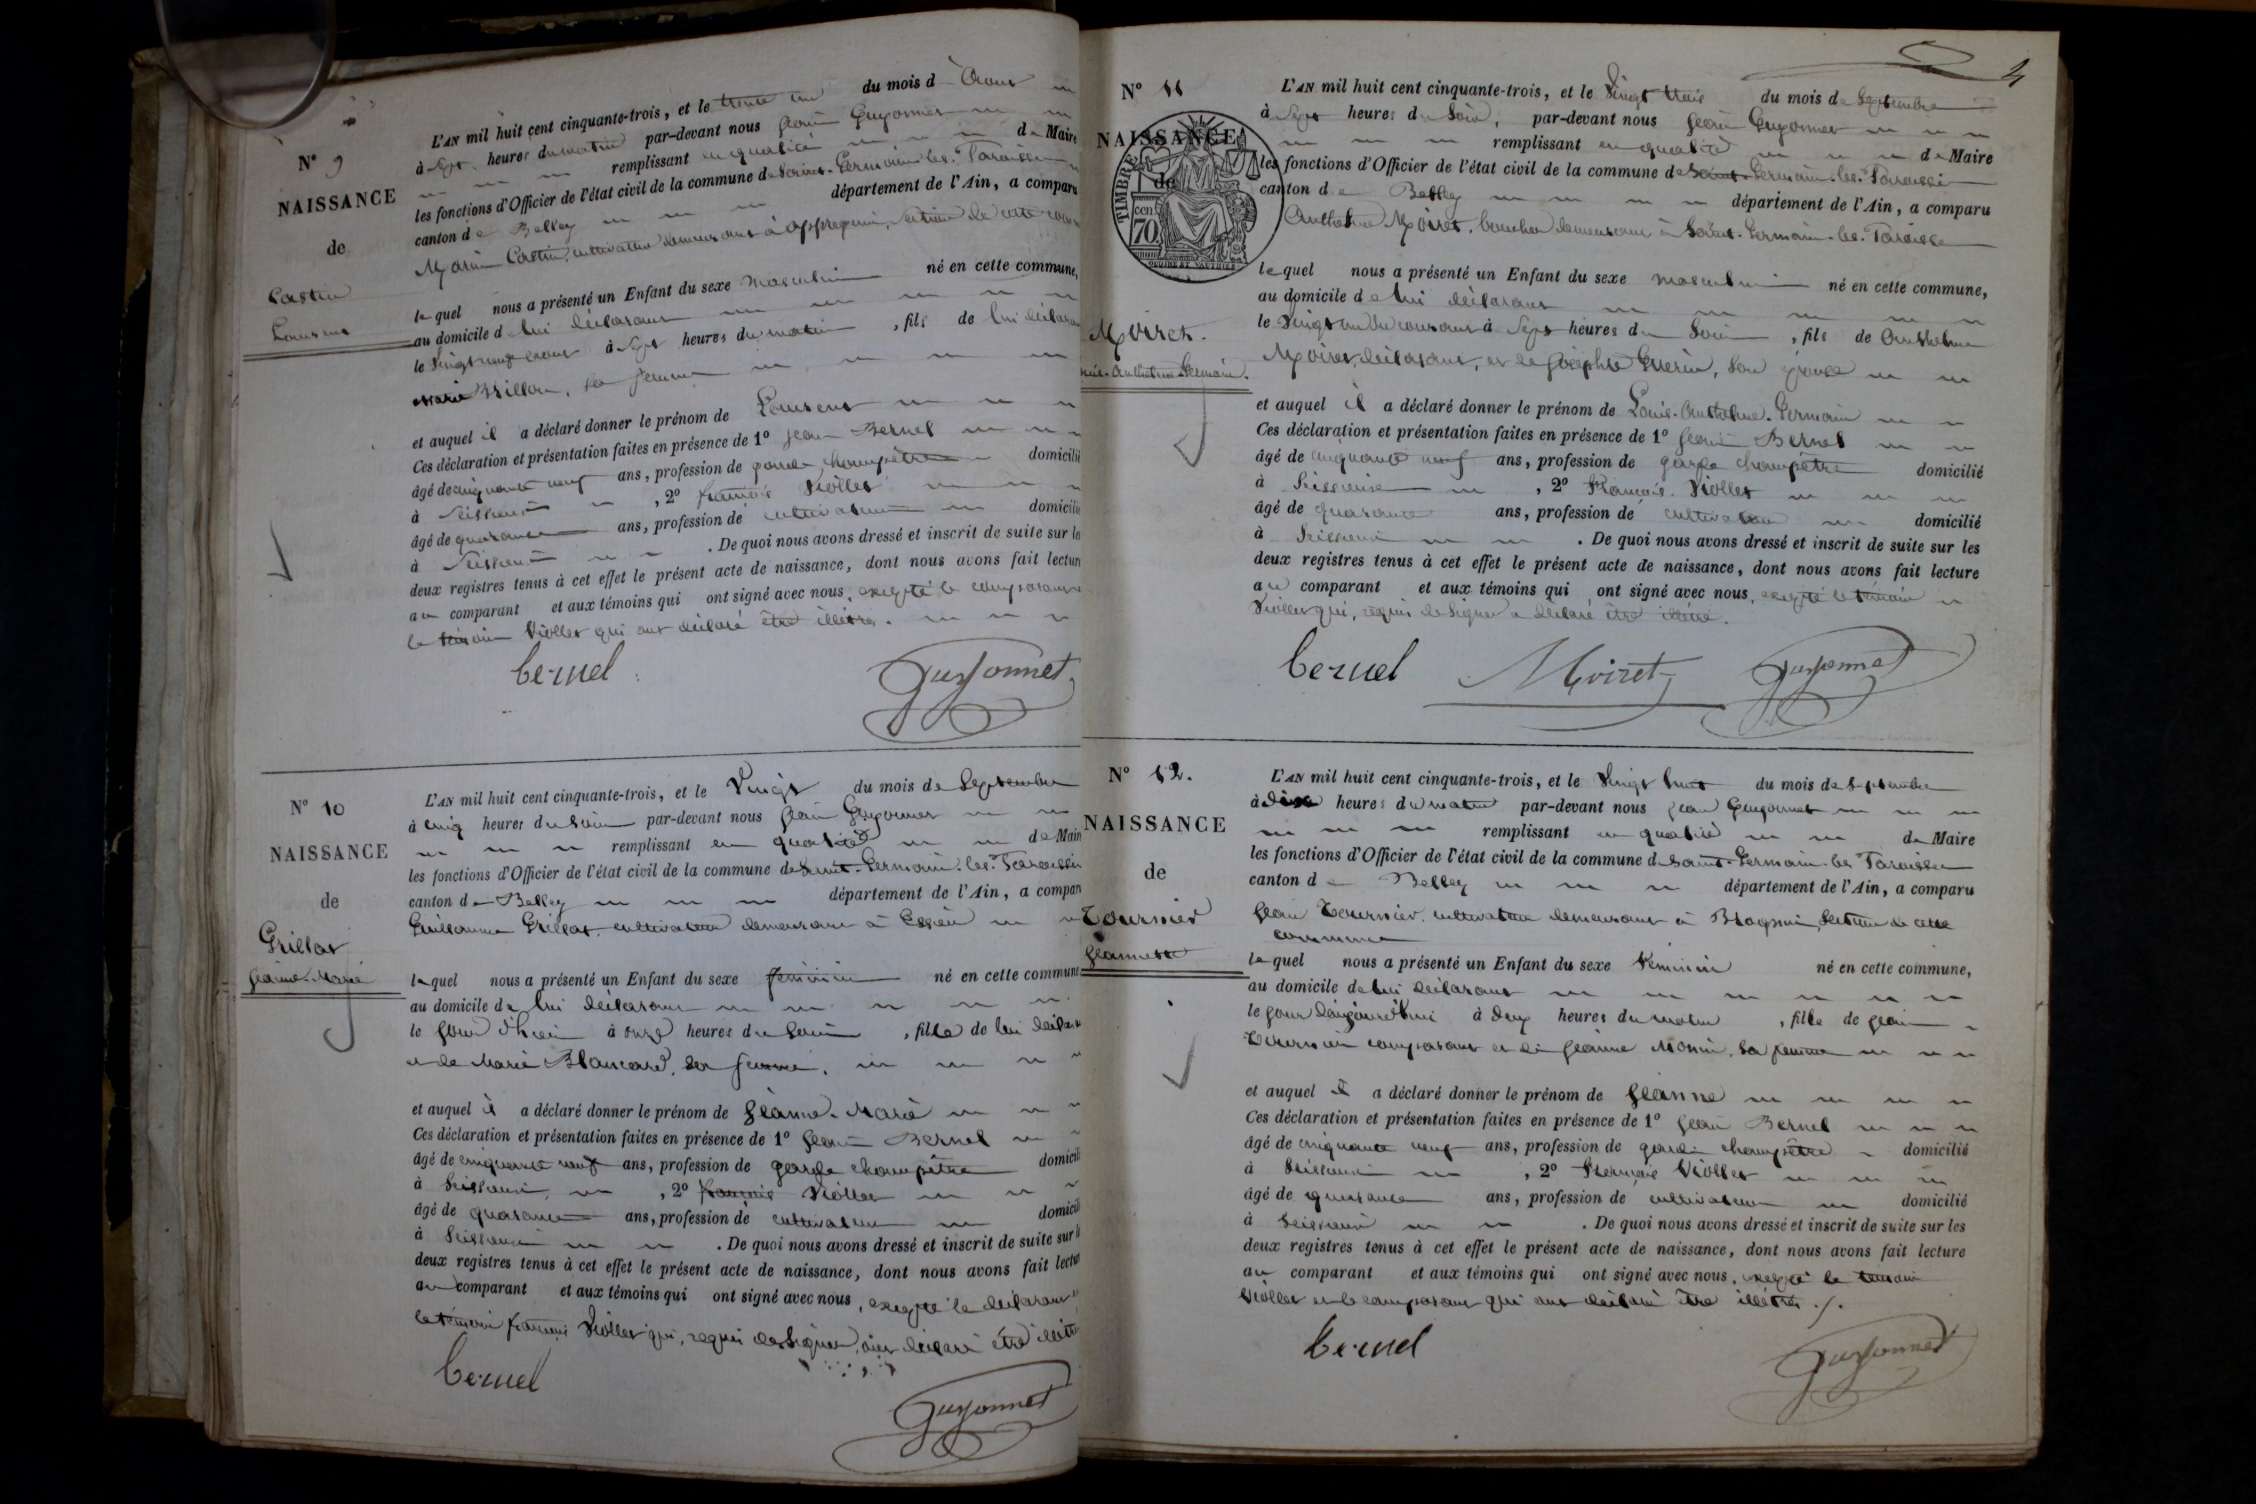 N° 9
NAISSANCE
de
Castin
Laurent
L'AN mil huit cent cinquante-trois, et le trente un du mois d'Aout
à sept heures du matin par-devant nous Jean Guyonnet
remplissant en qualité de Maire
les fonctions d'Officier de l'état civil de la commune de Saint-Germain-les-Paroisses
canton de Belley département de l'Ain, a comparu
Castin, cultivateur demeurant à section de cette
lequel nous a présenté un Enfant du sexe masculin né en cette commune,
au domicile de lui déclarant
le vingt neuf aout à sept heures du matin, fils de lui déclarant
Marie Billon, sa femme
et auquel il a déclaré donner le prénom de Laurent
Ces déclaration et présentation faites en présence de 1° Jean Bernel
âgé de cinquante neuf ans, profession de garde champêtre domicilié
à , 2° françois Viollet
âgé de quarante ans, profession de cultivateur domicilié
à . De quoi nous avons dressé et inscrit de suite sur les
deux registres tenus à cet effet le présent acte de naissance, dont nous avons fait lecture
au comparant et aux témoins qui ont signé avec nous, excepté le comparant
le témoin Viollet qui ont déclaré être illétrés.
bernel
Guyonnet
N° 10
NAISSANCE
de
Grillat
Jeanne-Marie
L'AN mil huit cent cinquante-trois, et le Vingt du mois de Septembre
à cinq heures du soir par-devant nous Jean Guyonnet
remplissant en qualité de Maire
les fonctions d'Officier de l'état civil de la commune de Saint-Germain-les-Paroisses
canton de Belley département de l'Ain, a comparu
Guillaume Grillat, cultivateur demeurant à Essieu
lequel nous a présenté un Enfant du sexe féminin né en cette commune
au domicile de lui déclarant
le jour d'hier à onze heures du soir, fille de lui déclarant
et de Marie Blancard, sa femme.
et auquel il a déclaré donner le prénom de Jeanne-Marie
Ces déclaration et présentation faites en présence de 1° Jean Bernel
âgé de cinquante neuf ans, profession de garde champêtre domicilié
à , 2° françois Viollet
âgé de quarante ans, profession de cultivateur domicilié
à . De quoi nous avons dressé et inscrit de suite sur les
deux registres tenus à cet effet le présent acte de naissance, dont nous avons fait lecture
au comparant et aux témoins qui ont signé avec nous, excepté le déclarant
le témoin françois Viollet qui, requis de signer, ont déclaré être
bernel
Guyonnet
4
N° 11
NAISSANCE
de
TIMBRE
70
Moiret.
Louis-Anthelme-Germain.
L'AN mil huit cent cinquante-trois, et le Vingt trois du mois de Septembre
à Sept heures du Soir, par-devant nous Jean Guyonnet
remplissant en qualité de Maire
les fonctions d'Officier de l'état civil de la commune de Saint-Germain-les-Paroisses
canton de Belley département de l'Ain, a comparu
Anthelme Moiret, boucher demeurant à Saint-Germain-les-Paroisses
lequel nous a présenté un Enfant du sexe masculin né en cette commune,
au domicile de lui déclarant
le Vingt un du courant à Sept heures du Soir, fils de Anthelme
Moiret, déclarant, et de Josephte Guerin, son épouse
et auquel il a déclaré donner le prénom de Louis-Anthelme-Germain
Ces déclaration et présentation faites en présence de 1° Jean Bernel
âgé de cinquante neuf ans, profession de garde champêtre domicilié
à , 2° François Viollet
âgé de quarante ans, profession de cultivateur domicilié
à . De quoi nous avons dressé et inscrit de suite sur les
deux registres tenus à cet effet le présent acte de naissance, dont nous avons fait lecture
au comparant et aux témoins qui ont signé avec nous, excepté le témoin
Viollet qui, requis de signer a déclaré être illétré.
bernel Moiret Guyonnet
N° 12.
NAISSANCE
de
Tournier
Jeannette
L'AN mil huit cent cinquante-trois, et le Vingt huit du mois de Septembre
à dix heures du matin par-devant nous Jean Guyonnet
remplissant en qualité de Maire
les fonctions d'Officier de l'état civil de la commune de Saint-Germain-les-Paroisses
canton de Belley département de l'Ain, a comparu
Jean Tournier, cultivateur demeurant à section de cette
commune
lequel nous a présenté un Enfant du sexe féminin né en cette commune,
au domicile de lui déclarant
le jour d'aujourd'hui à deux heures du matin, fille de Jean
Tournier comparant et de Jeanne sa femme
et auquel il a déclaré donner le prénom de Jeanne
Ces déclaration et présentation faites en présence de 1° Jean Bernel
âgé de cinquante neuf ans, profession de garde champêtre domicilié
à , 2° François Viollet
âgé de quarante ans, profession de cultivateur domicilié
à . De quoi nous avons dressé et inscrit de suite sur les
deux registres tenus à cet effet le présent acte de naissance, dont nous avons fait lecture
au comparant et aux témoins qui ont signé avec nous, excepté le témoin
Viollet et le comparant qui ont déclaré être illétrés ./.
bernel
Guyonnet